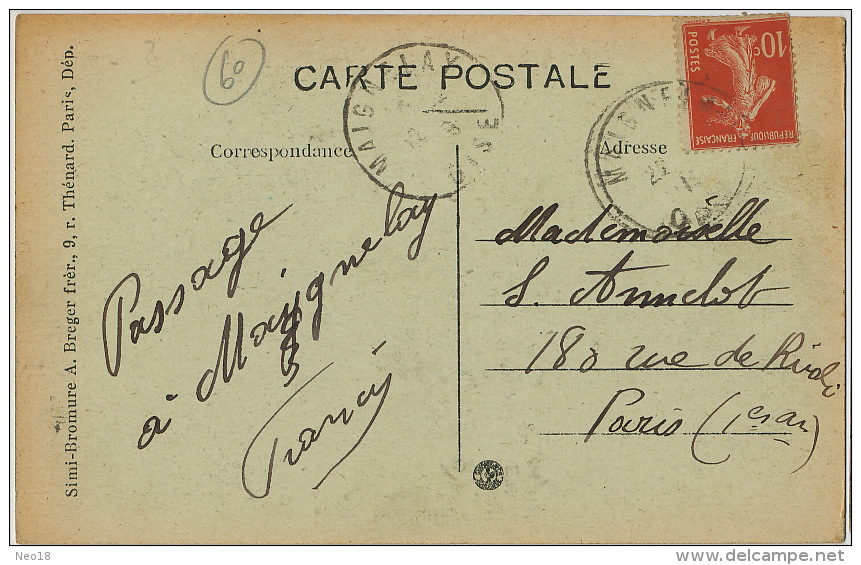 60
CARTE POSTALE
Correspondance
Adresse
10c
POSTES
REPUBLIQUE FRANÇAISE
MAIGNELAY
OISE
Passage
à Maignelay
Francis
Mademoiselle
S. Annelot
180 rue de Rivoli
Paris (1er ar)
Simi-Bromure A. Breger frèr., 9, r. Thénard. Paris, Dép.
Neo18
delcampe.net